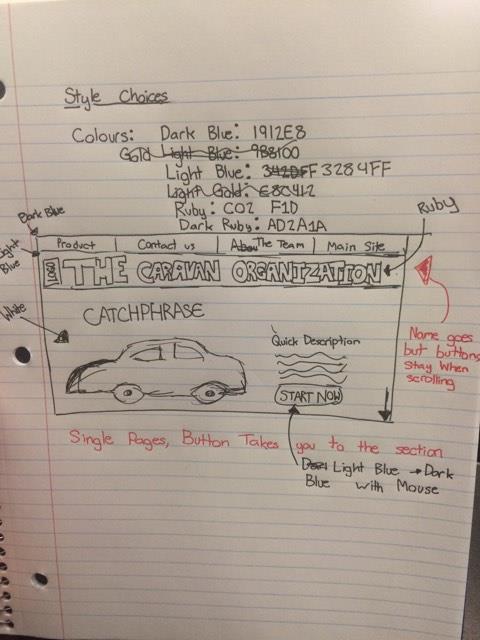 Style Choices
Colours: Dark Blue: 1912E8
Gold Light Blue: 9B8100
Light Blue: 3284FF
Light Gold: E8C412
Ruby: C02 F1D
Dark Ruby: AD2A1A
Dark Blue
Ruby
Product Contact us The Team Main Site
Light Blue
LOGO THE CARAVAN ORGANIZATION
White
CATCHPHRASE
Quick Description
START NOW
Name goes
but buttons
stay when
scrolling
Single Pages, Button Takes you to the section
Light Blue → Dark
Blue with Mouse